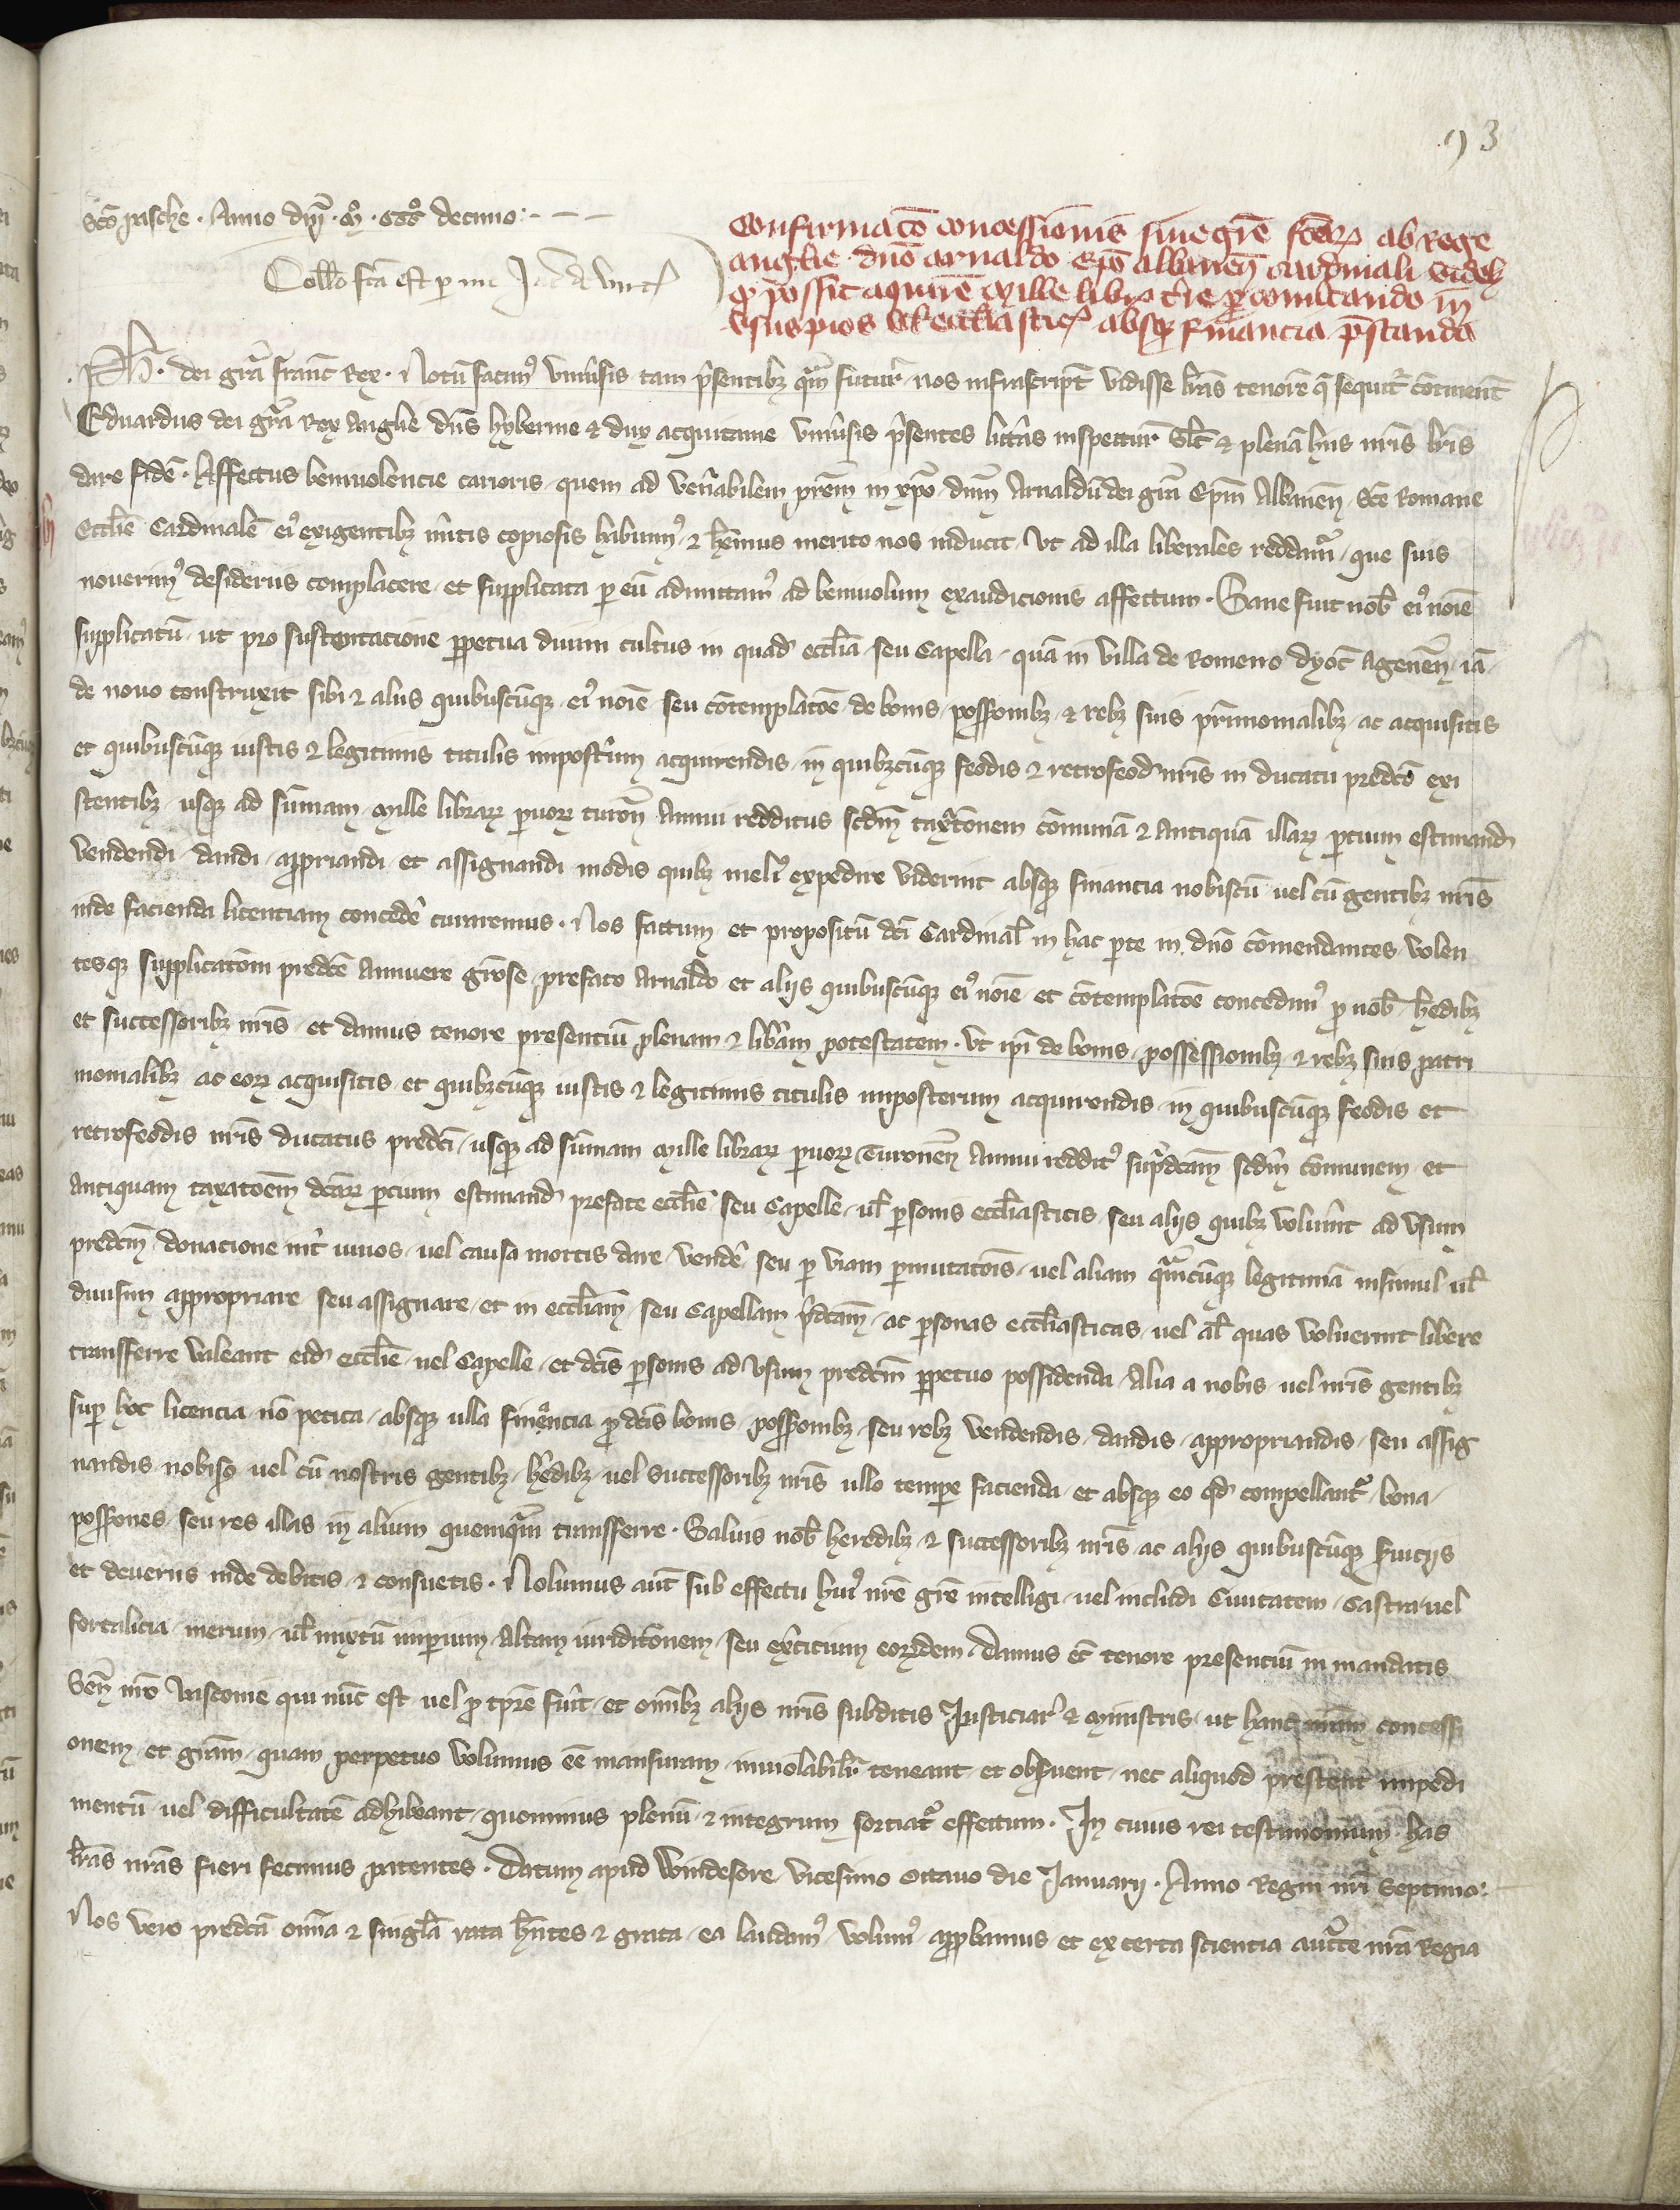 93
sco pasche . Anno dni . M . CCCo decimo : - — —
Collo fca est per me
Confirmaco concessionis sine gre fce ab Rege
anglie dno arnaldo Epo albanen cardinali videl
q possit aquire Mille libr tre p comutando in
usus pios vel eccliastic absq financia pstanda
Ph . dei gra franc Rex . Notu facim9 univsis tam psentibz qm futur nos infrascript vidisse lras tenore q sequit continent
Edvardus dei gra Rex Anglie dns hybernie & dux acquitanie univsis psentes littas inspectur salt & plena hiis nris lris
dare fide . Affectus benivolencie carioris quem ad venabilem prem in xpo dnm Arnaldu dei gra Epm Albanen Sce Romane
Ecclie Cardinale ei9 exigentibz mitis copiosis habuim9 & hemus merito nos inducit ut ad illa liberales reddamr que suis
noverim9 desideriis complacere et supplicata p eu admittam9 ad benivolum exaudicionis affectum . Sane fuit nob ei9 noie
supplicatu ut pro sustentacione ppetua divini cultus in quad ecclia seu Capella qua in villa de Romeno dyoc Agenen ia
de novo construxit sibi & aliis quibuscuqz ei9 noie seu contemplatoe de bonis possionibz & rebz suis primonialibz ac acquisitis
et quibuscuqz iustis & legitimis titulis impostum acquirendis in quibzcuqz feodis & retrofeod nris in ducatu predco exi
stentibz usqz ad summam Mille librar pvor turon Annui redditus scdm taxatonem comuna & antiqua illar pcium estimand
vendendi dandi appriandi et assignandi modis quibz meli9 expedire viderint absqz financia nobiscu vel cu gentibz nris
inde facienda licentiam concede curaremus . Nos factum et propositu dci Cardinal in hac pte in dno comendantes volen
tesqz supplicatom predce annuere giose prefato Arnaldo et aliis quibuscuqz ei9 noie et contemplatoe concedim9 p nob hedibz
et successoribz nris et damus tenore presentiu plenam & libam potestatem . Ut ipi de bonis possessionibz & rebz suis patri
monialibz ac eor acquisitis et quibzcuqz iustis & legitimis titulis imposterum acquirendis in quibuscuqz feodis et
retrofeodis nris ducatus predci usqz ad summam Mille librar pvor Turonen Annui reddit9 supdcam scdm comunem et
antiquam taxatoem dcar pcium estimand prefate ecclie seu Capelle vl psonis eccliasticis seu aliis quibz voluint ad usum
predcm donacione int vivos vel causa mortis dare vende seu p viam pmutatois vel aliam qmcuqz legitima insimul vl
divisim appropriare seu assignare et in eccliam seu Capellam pdcam ac psonas eccliasticas vel al quas voluerint libere
transferre valeant eid ecclie vel Capelle et dcis psonis ad usum predcm ppetuo possidenda alia a nobis vel nris gentibz
sup hoc licencia no petita absqz ulla finencia p dcis bonis possionibz seu rebz vendendis dandis appropriandis seu assig
nandis nobisc vel cu nostris gentibz hedibz vel successoribz nris ullo tempe facienda et absqz eo qd compellantr bona
possiones seu res illas in alium quemqm transferre . Salvis nob heredibz & successoribz nris ac aliis quibuscuqz sviciis
et deveriis inde debitis & consuetis . Nolumus aut sub effectu hui9 nre gre intelligi vel includi Civitatem castra vel
fortalicia merum vl mixtu impium altam iuridiconem seu excitium eorudem . Damus et tenore presentiu in mandatis
Sen nro Vasconie qui nuc est vel p tpre fuit et omibz aliis nris subditis Justiciar & ministris ut hanc nram concessi
onem et gram quam perpetuo volumus ee mansuram inviolabilr teneant et observent nec aliquod prestent impedi
mentu vel difficultate adhibeant quominus plenu & integrum sortiatr effectum . In cuius rei testimonium has
lras nras fieri fecimus patentes . Datum apud Windesore vicesimo octavo die Januarii . Anno Regni nri Septimo :
Nos vero predcta omia & singla rata hntes & grata ea laudam9 volum9 appbamus et ex certa scientia auctte nra Regia